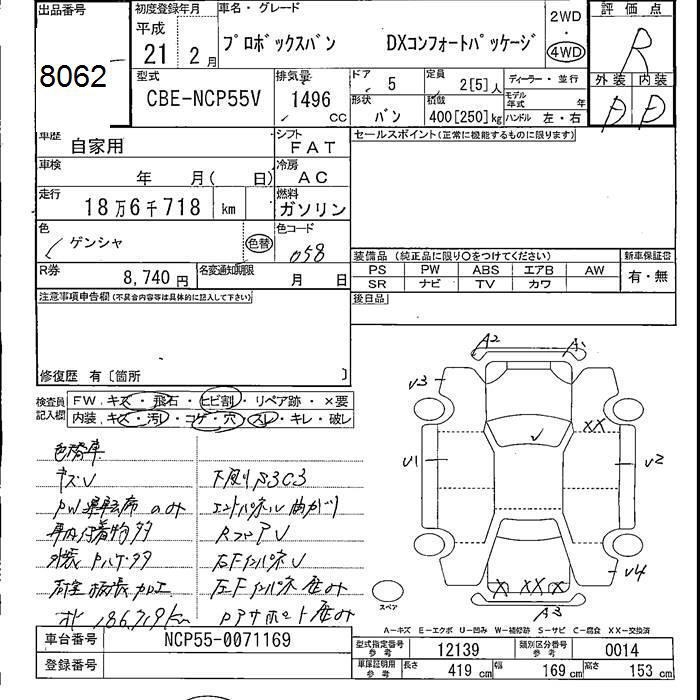 出品番号
8062
初度登録年月
平成
21 2 月
車名・グレード
プロボックスバン DXコンフォートパッケージ
2WD
・
4WD
評価点
R
外装 内装
D D
型式
CBE-NCP55V
排気量
1496
CC
ドア
5
形状
バン
定員
2[5] 人
積載
400[250] kg
ディーラー・並行
モデル
年式 年
ハンドル 左・右
車歴
自家用
シフト
FAT
車検
年 月( 日)
冷房
AC
走行
18万6千718 km
燃料
ガソリン
色
ゲンシャ 色替
色コード
058
R券
8,740 円
名変通知期限
月 日
セールスポイント(正常に機能するものに限ります)
装備品(純正品に限り〇をつけてください)
新車保証書
PS PW ABS エアB AW
SR ナビ TV カワ
有・無
後日品
注意事項申告欄(不具合内容等は具体的に記入して下さい)
修復歴 有〔箇所 〕
検査員
記入欄
FW. キズ・飛石・ヒビ割・リペア跡・×要
内装. キズ・汚レ・コゲ・穴・スレ・キレ・破レ
色替車
キズV
PW運転席のみ
車内付着物多
下廻りS3C3
エンドパネル曲がり
外装
荷室板張加工
186,719km
A2
A1
V3
XX
V1
V2
V4
X XX X
A3
スペア
A-キズ E-エクボ U-凹み W-補修跡 S-サビ C-腐食 XX-交換済
車台番号
NCP55-0071169
登録番号
型式指定番号
参考
12139
類別区分番号
参考
0014
車庫証明用
参考
長さ
419 cm
幅
169 cm
高さ
153 cm